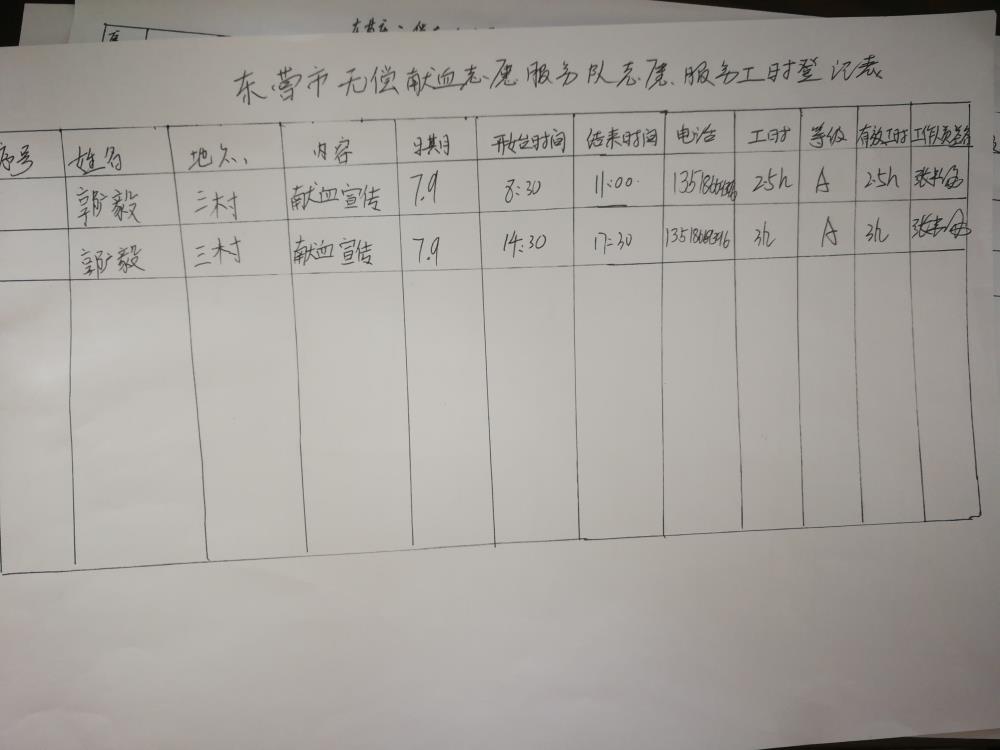 东营市无偿献血志愿服务队志愿服务工时登记表
序号 姓名 地点 内容 日期 开始时间 结束时间 电话 工时 等级 有效工时 工作人员签名
郭毅 三村 献血宣传 7.9 8:30 11:00 2.5h A 2.5h
郭毅 三村 献血宣传 7.9 14:30 17:30 3h A 3h